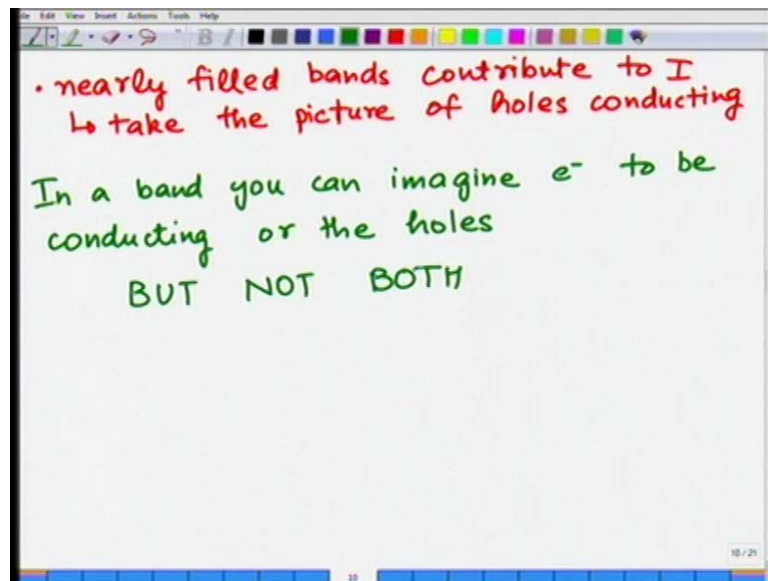 File Edit View Insert Actions Tools Help
B I
• nearly filled bands contribute to I
↳ take the picture of holes conducting
In a band you can imagine e⁻ to be
conducting or the holes
BUT NOT BOTH
10/21
10